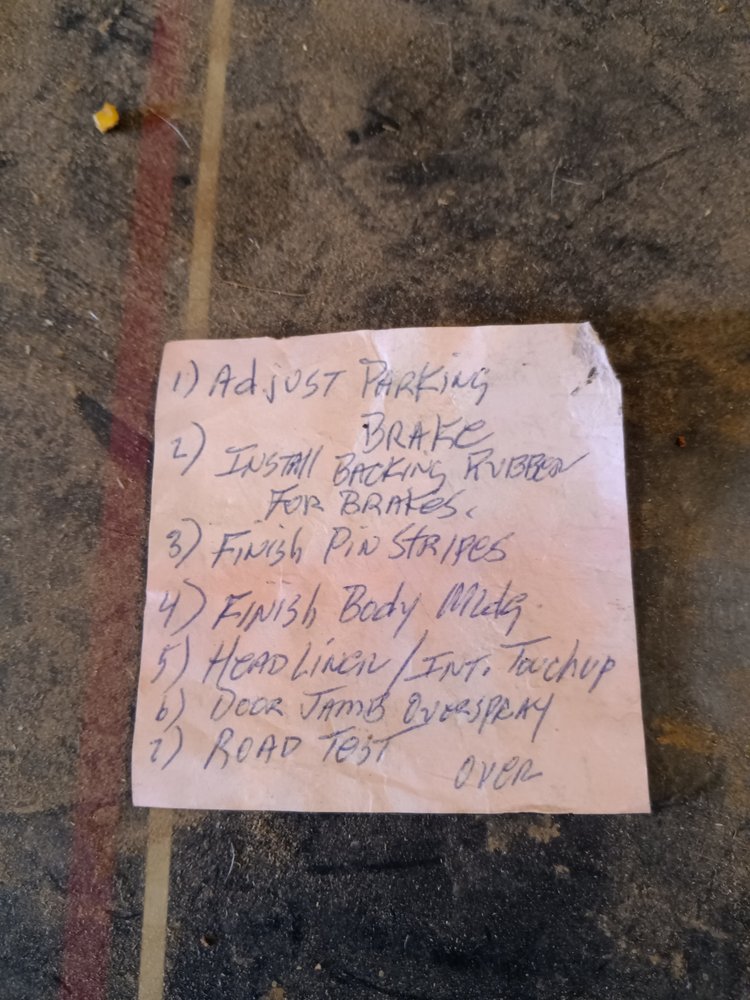 1) Adjust Parking
Brake
2) Install Backing Rubber
For Brakes.
3) Finish Pin Stripes
4) Finish Body Mldg.
5) Headliner / Int. Touchup
6) Door Jamb Overspray
7) Road Test
over